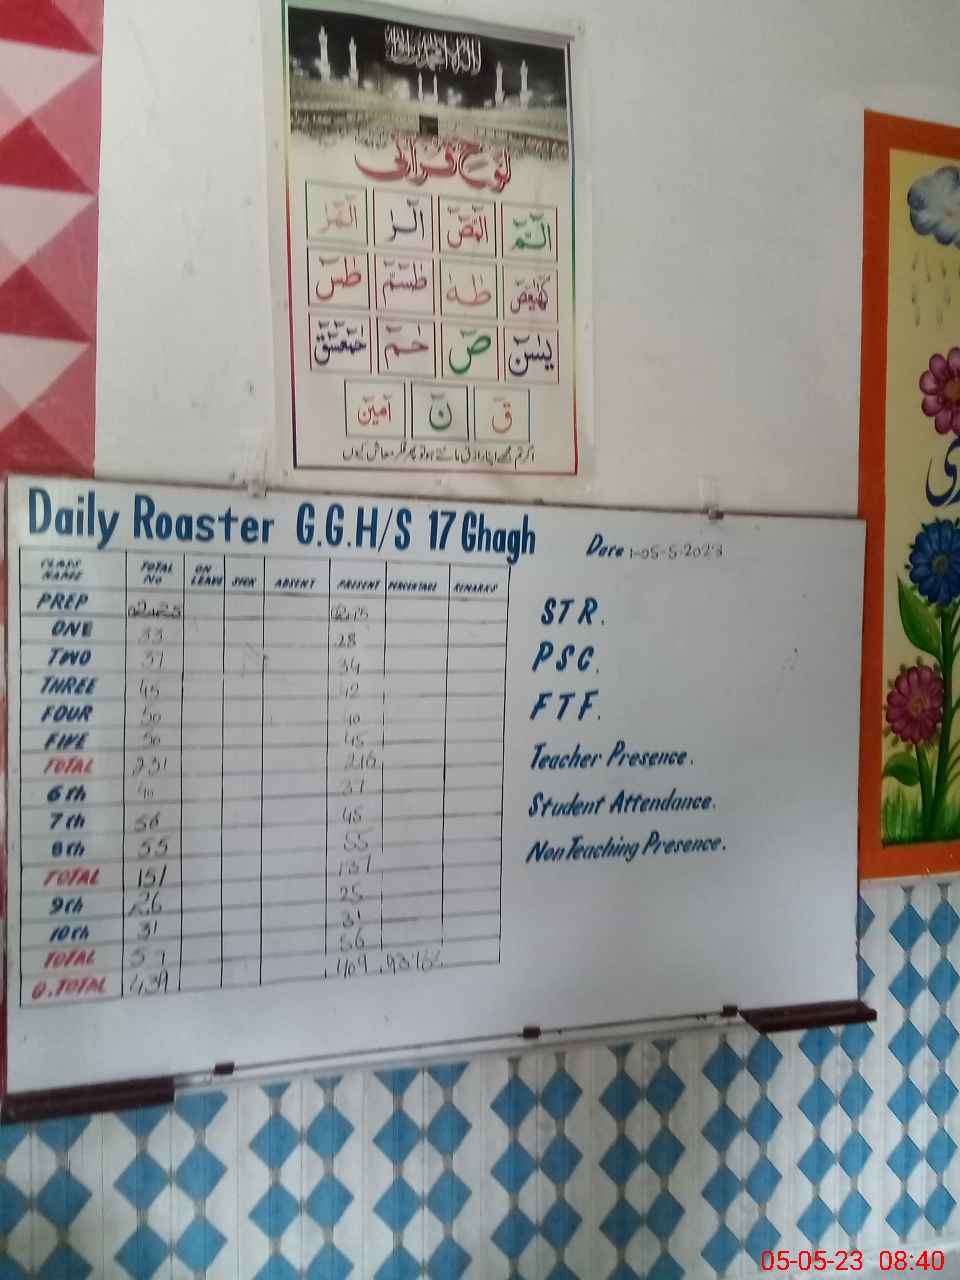 لا اله الا الله محمد رسول الله
لوح قرآنی
الٓمّٓ الٓمّٓصٓ الٓرٰ الٓمّٓرٰ
كٓهٰيٰعٓصٓ طٰهٰ طٰسٓمّٓ طٰسٓ
يٰسٓ صٓ حٰمٓ حٰمٓعٓسٓقٓ
قٓ نٓ آمین
اگر تم مجھے اپنا رازق مانتے ہو تو پھر فکر معاش کیوں
Daily Roaster G.G.H/S 17 Ghagh
Date :-05-5-2023
CLASS NAME TOTAL No ON LEAVE SICK ABSENT PRESENT PERCENTAGE REMARKS
PREP
ONE 33 28
TWO 37 34
THREE 45 42
FOUR 50 40
FIVE 50 45
TOTAL 231 216
6th 40 37
7th 56 45
8th 55 55
TOTAL 151 137
9th 26 25
10th 31 31
TOTAL 57 56
G.TOTAL 439 409
STR.
PSC.
FTF.
Teacher Presence.
Student Attendance.
Non Teaching Presence.
05-05-23 08:40